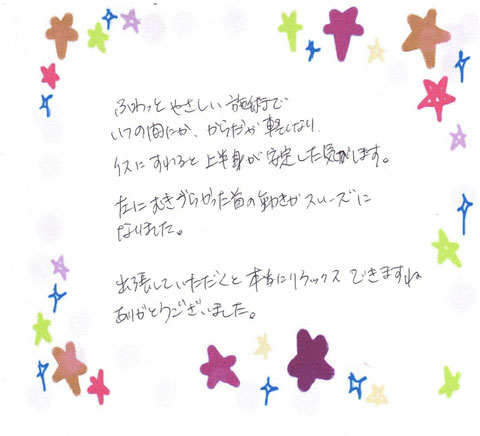 ふわっと やさしい 施術で
いつの間にか、からだが 軽くなり
イスに すわると 上半身が 安定した気がします。
左に むきづらかった 首の動きが スムーズに
なりました。
出張していただくと 本当にリラックス できますね
ありがとうございました。